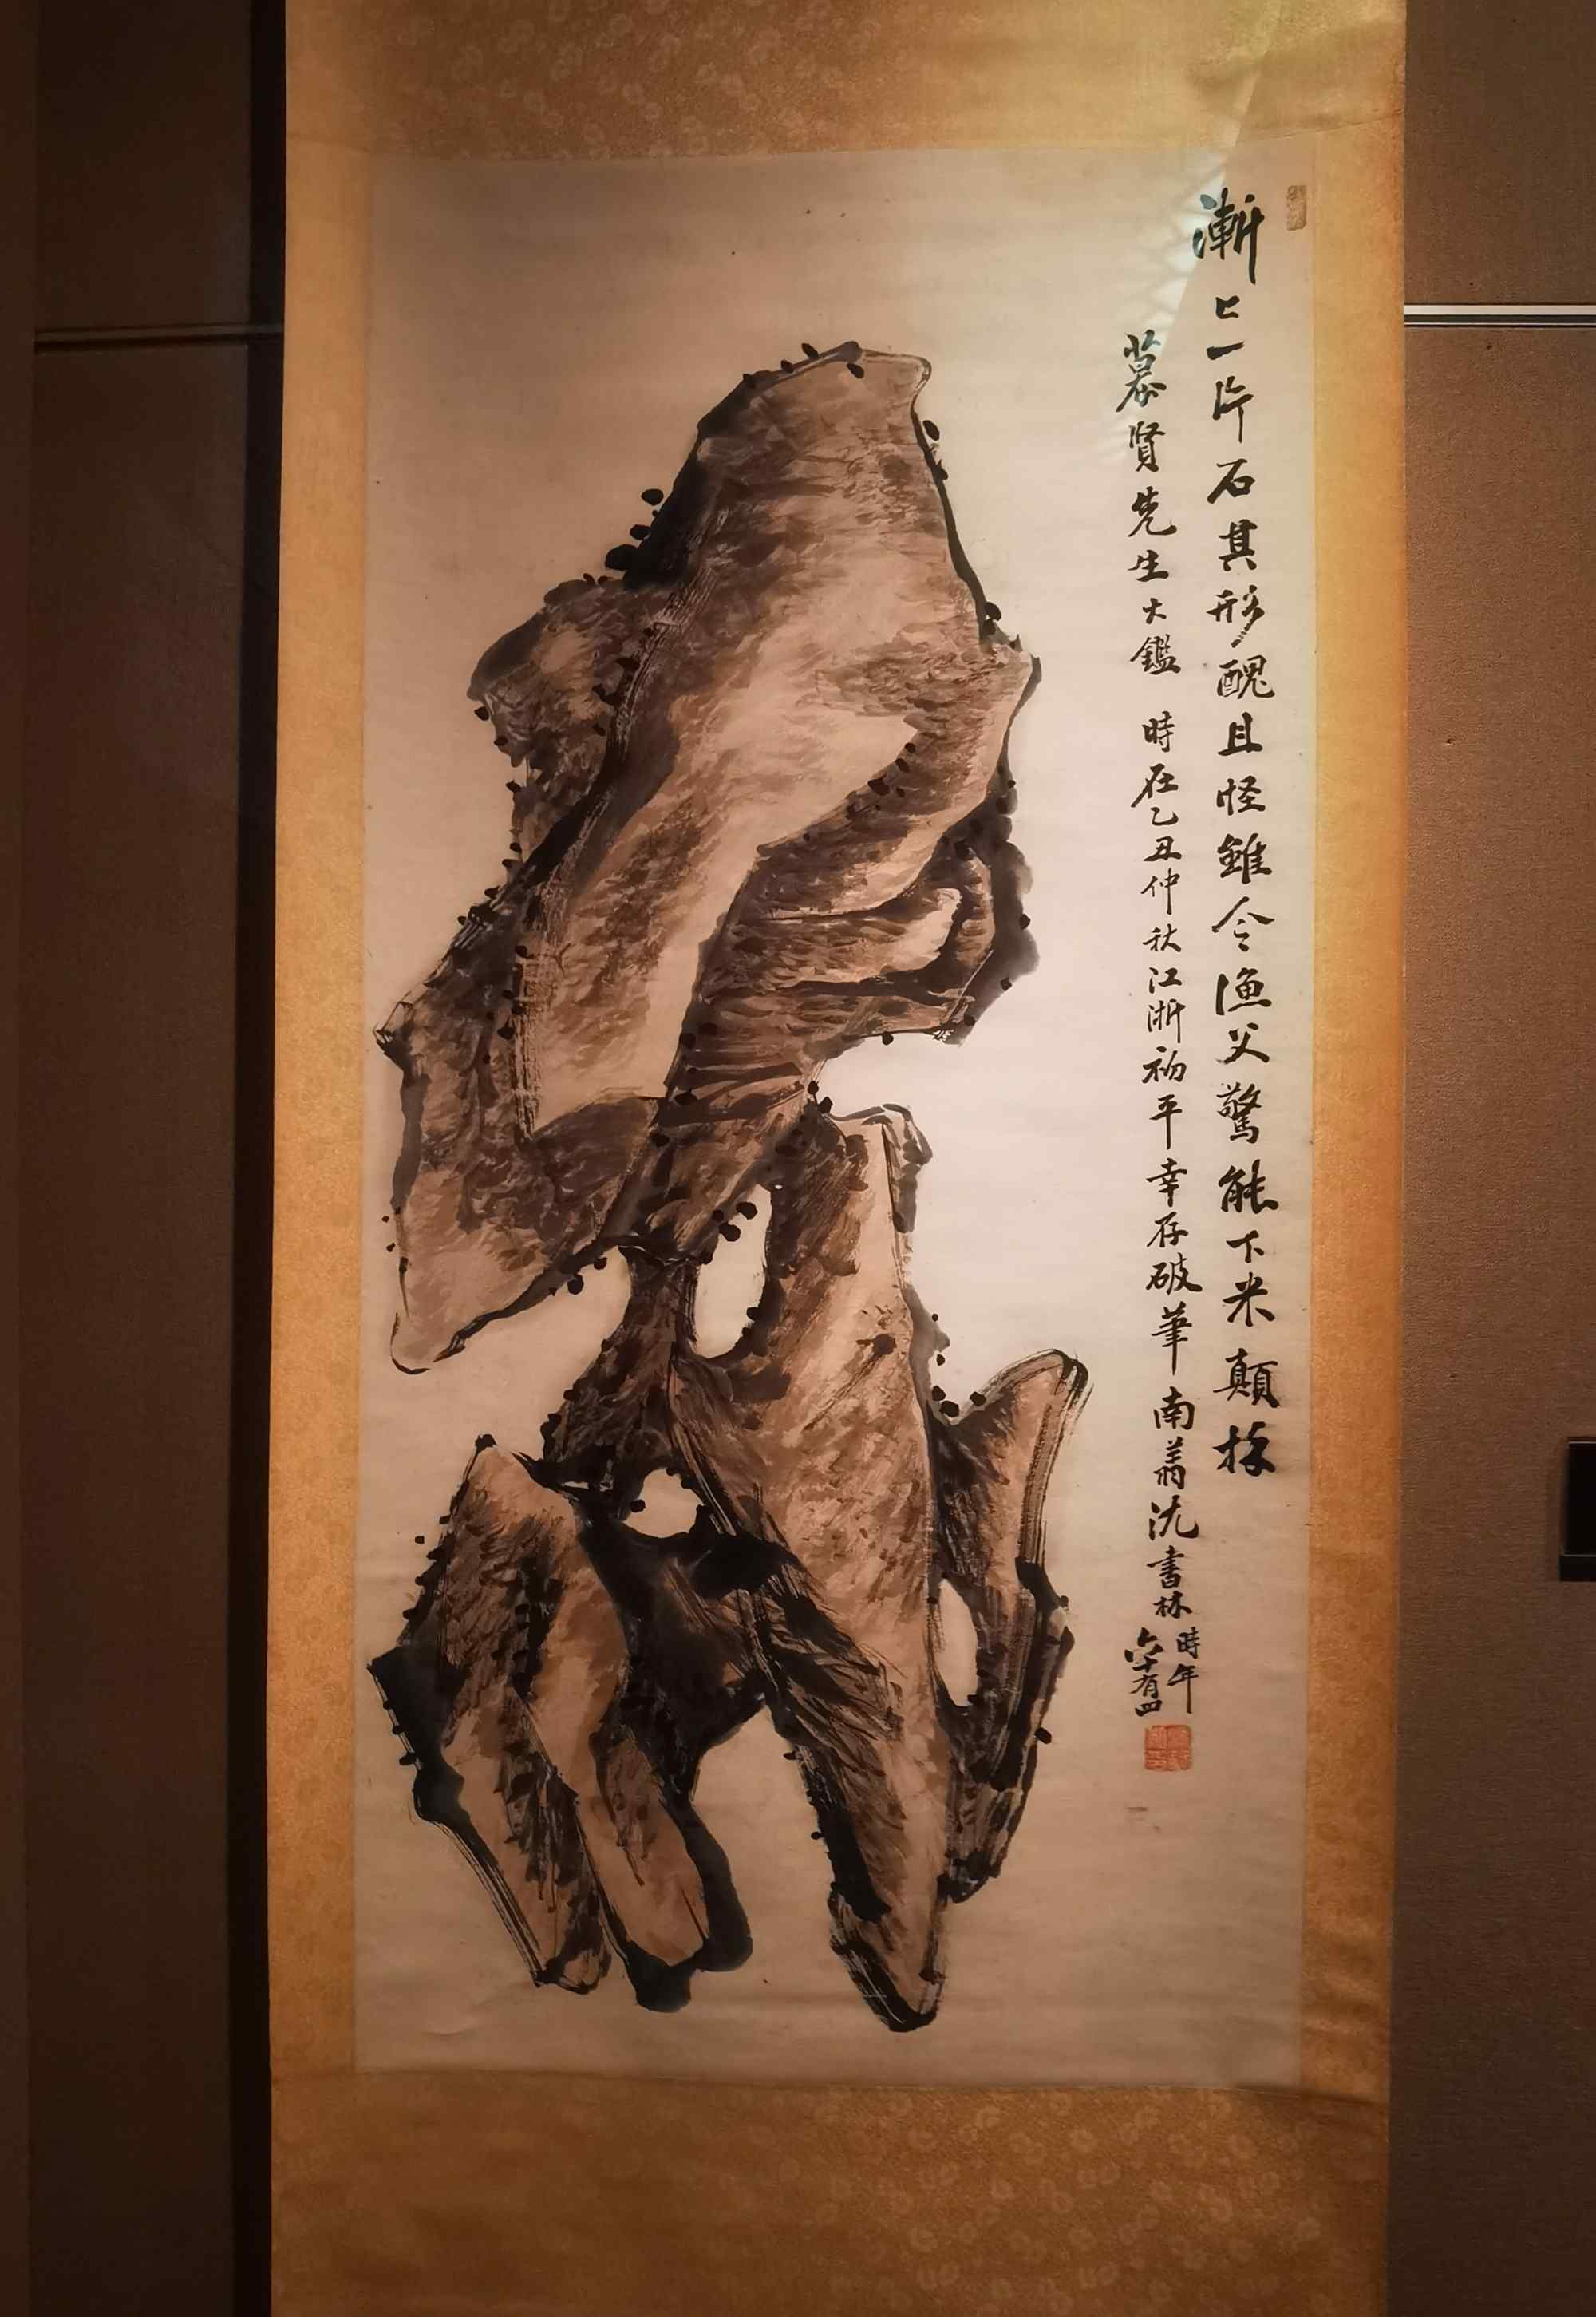 漸〻一片石其形醜且怪雖令漁父驚能下米顛拜
慕賢先生大鑑 時在乙丑仲秋江浙初平幸存破筆 南翁沈書林 時年六十有四